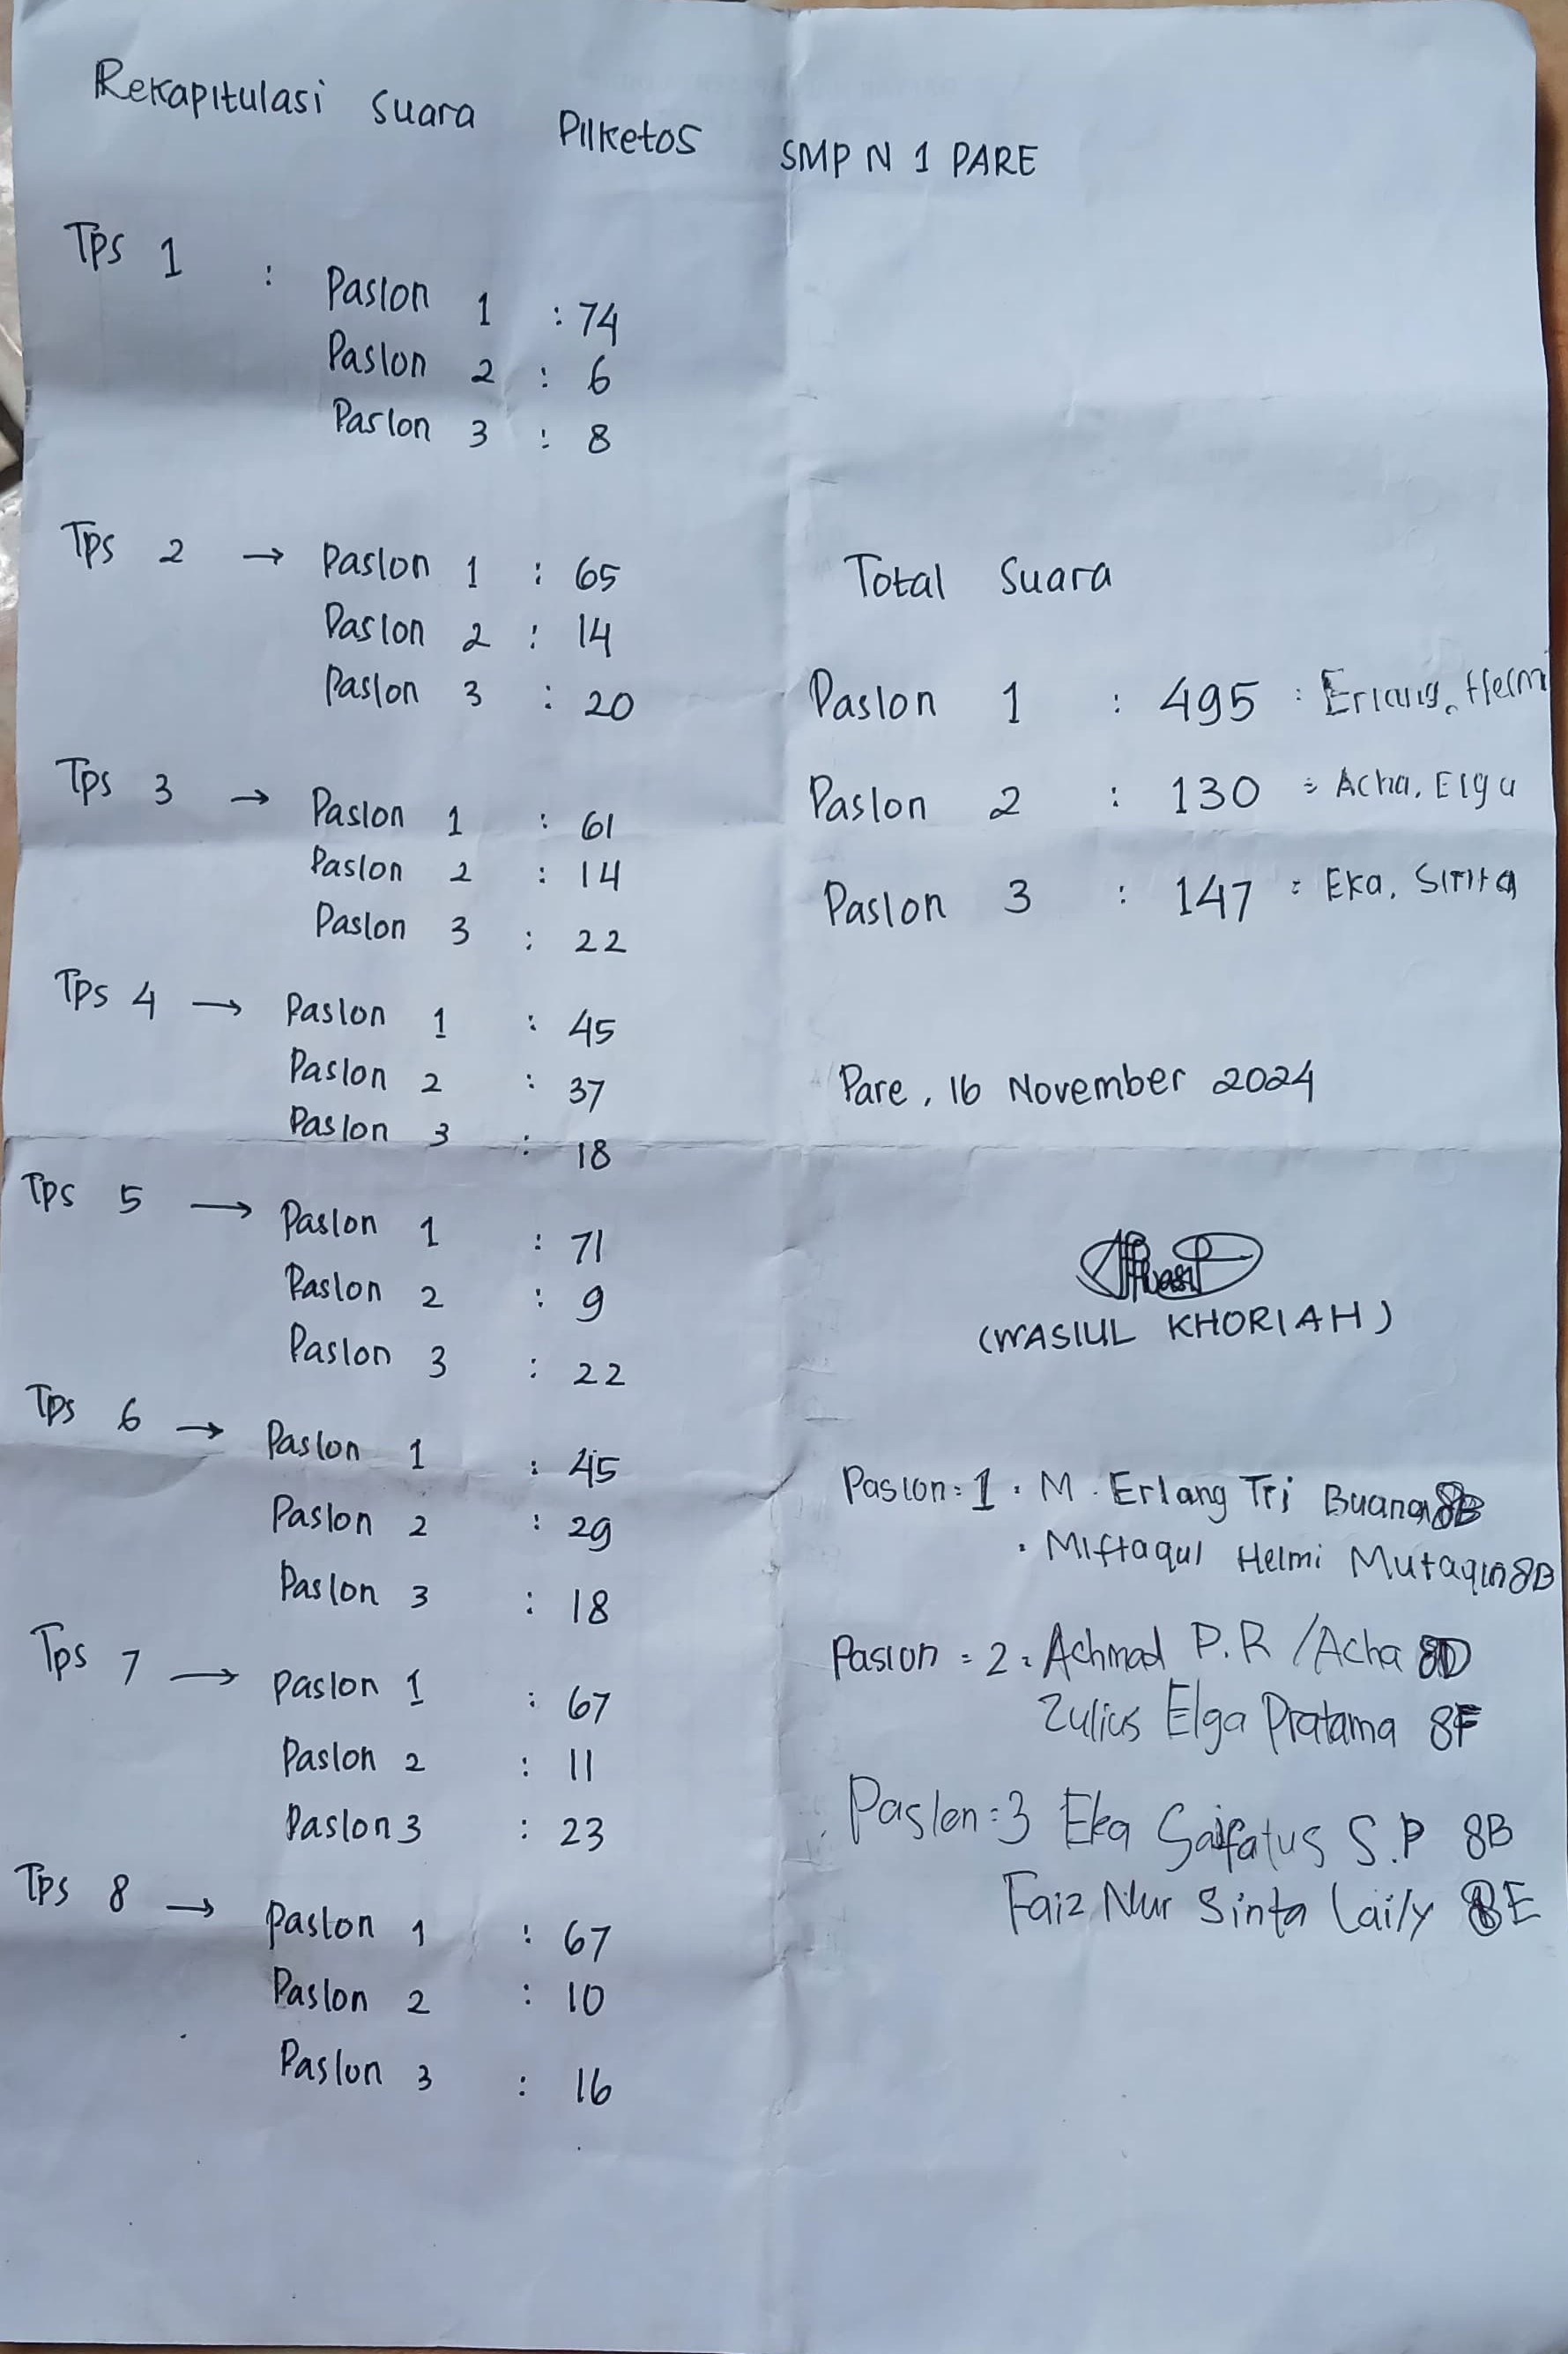 Rekapitulasi Suara Pilketos SMP N 1 PARE
Tps 1 : Paslon 1 : 74
Paslon 2 : 6
Paslon 3 : 8
Tps 2 → Paslon 1 : 65
Paslon 2 : 14
Paslon 3 : 20
Tps 3 → Paslon 1 : 61
Paslon 2 : 14
Paslon 3 : 22
Tps 4 → Paslon 1 : 45
Paslon 2 : 37
Paslon 3 : 18
Tps 5 → Paslon 1 : 71
Paslon 2 : 9
Paslon 3 : 22
Tps 6 → Paslon 1 : 45
Paslon 2 : 29
Paslon 3 : 18
Tps 7 → Paslon 1 : 67
Paslon 2 : 11
Paslon 3 : 23
Tps 8 → Paslon 1 : 67
Paslon 2 : 10
Paslon 3 : 16
Total Suara
Paslon 1 : 495 : Erlang, Helmi
Paslon 2 : 130 : Acha, Elga
Paslon 3 : 147 : Eka, Sinta
Pare, 16 November 2024
(WASIUL KHORIAH)
Paslon : 1 . M. Erlang Tri Buana 8B
. Miftaqul Helmi Mutaqin 8B
Paslon = 2 . Achmad P.R /Acha 8D
Zulius Elga Pratama 8F
Paslon = 3 Eka Saifatus S.P 8B
Faiz Nur Sinta Laily 8E